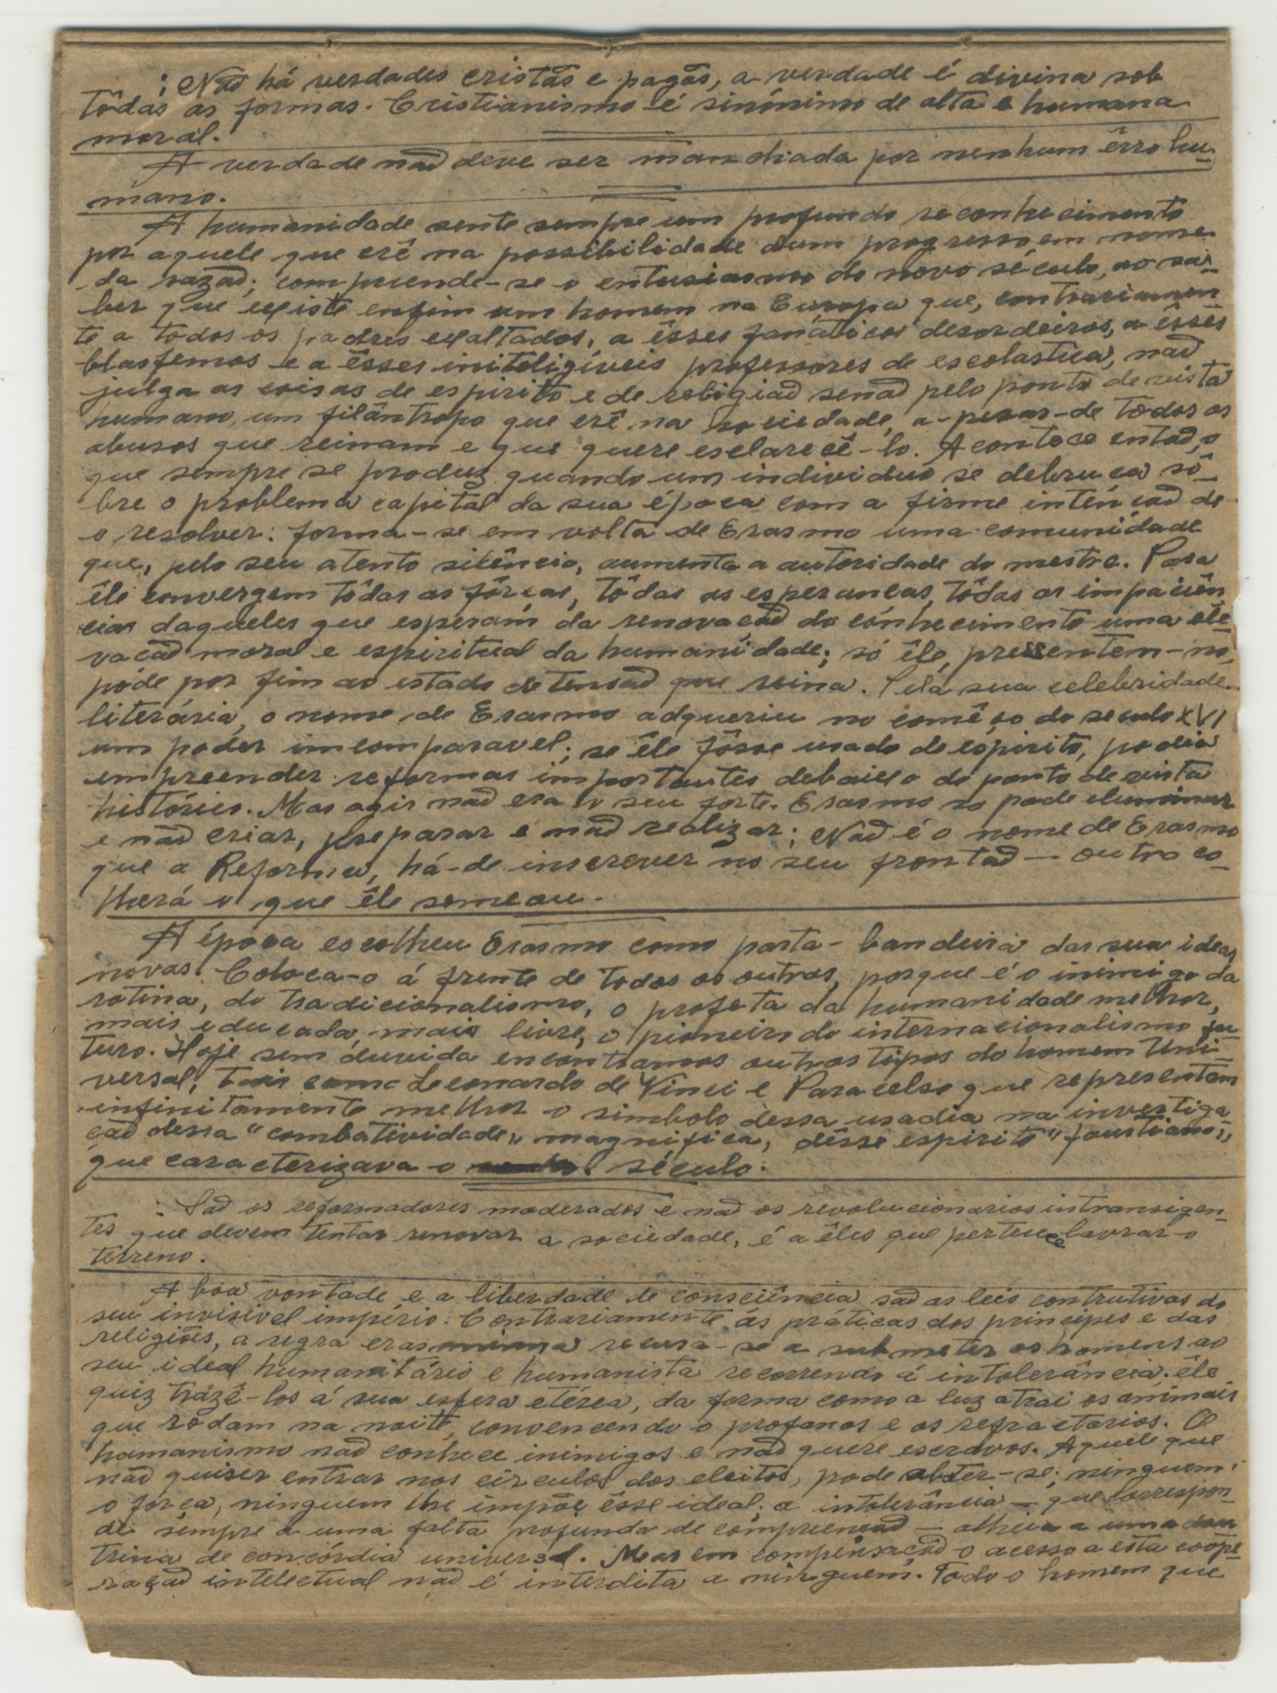 : Não há verdades cristãs e pagãs, a verdade é divina sob
tôdas as formas. Cristianismo é sinónimo de alta e humana
moral.
A verdade não deve ser manchada por nenhum êrro hu-
mano.
A humanidade sente sempre um profundo reconhecimento
por aquele que crê na possibilidade dum progresso em nome
da razão; compreende-se o entusiasmo do novo século, ao sa-
ber que existe enfim um homem na Europa que, contrariamen-
te a todos os padres exaltados, a êsses fanáticos desordeiros, a êsses
blasfemos e a êsses initeligíveis professores de escolastica, não
julga as coisas de espirito e de religião senão pelo ponto de vista
humano, um filântropo que crê na sociedade, a-pesar-de todos os
abusos que reinam e que quere esclarecê-lo. Acontece então, o
que sempre se produz quando um individuo se debruca sô-
bre o problema capital da sua época com a firme intencão de
o resolver: forma-se em volta de Erasmo uma comunidade
que, pelo seu atento silêncio, aumenta a autoridade do mestre. Para
êle convergem tôdas as fôrcas, tôdas as esperancas, tôdas as impaciên
cias daqueles que esperam da renovacão do conhecimento uma ele-
vacão moral e espiritual da humanidade; só êle, pressentem-no,
pode por fim ao estado de tensão que reina. Pela sua celebridade
literária, o nome de Erasmo adqueriu no comêço do seculo XVI
um poder imcomparavel; se êle fôsse usado de espirito, podia
empreender reformas importantes debaixo do ponto de vista
histórico. Mas agir não era o seu forte. Erasmo so pode iluminar
e não criar, preparar e não realizar; Não é o nome de Erasmo
que a Reforma, há-de inscrever no seu frontão — outro co-
lherá o que êle semeou.
A época escolheu Erasmo como porta-bandeira das suas ideas
novas. Coloca-o á frente de todos os outros, porque é o inimigo da
rotina, do tradicionalismo, o profeta da humanidade melhor,
mais educada, mais livre, o pioneiro do internacionalismo fu-
turo. Hoje sem duvida encontramos outros tipos do homem Uni-
versal, tais como Leonardo de Vinci e Paracelso que representam
infinitamente melhor o simbolo dessa usadia na investiga
cão dessa "combatividade" magnifica, dêsse espirito "faustiano",
que caracterizava o século.
: São os reformadores moderados e não os revolucionarios intransigen-
tes que devem tentar renovar a sociedade, é a êles que pertence lavrar o
terreno.
A boa vontade e a liberdade de consciência são as leis contrutivas do
seu invizivel império: Contrariamente as práticas dos principes e das
religiões, a regra erasmiana recusa-se a submeter os homens ao
seu ideal humanitário e humanista recorrendo á intolerância: êle
quiz trazê-los á sua esfera etérea, da forma como a luz atrai os animais
que rodam na noite, convencendo o profanos e os refractarios. O
humanismo não conhece inimigos e não quere escravos. Aquele que
não quiser entrar nos circulos dos eleitos, pode abster-se; ninguem
o força, ninguem lhe impõe êsse ideal; a intolerância — que correspon-
de sempre a uma falta profunda de compreensão — alheia a uma dou
trina de concórdia universal. Mas em compensacão o acesso a esta coope
ração intelectual não é interdita a ninguem. Todo o homem que